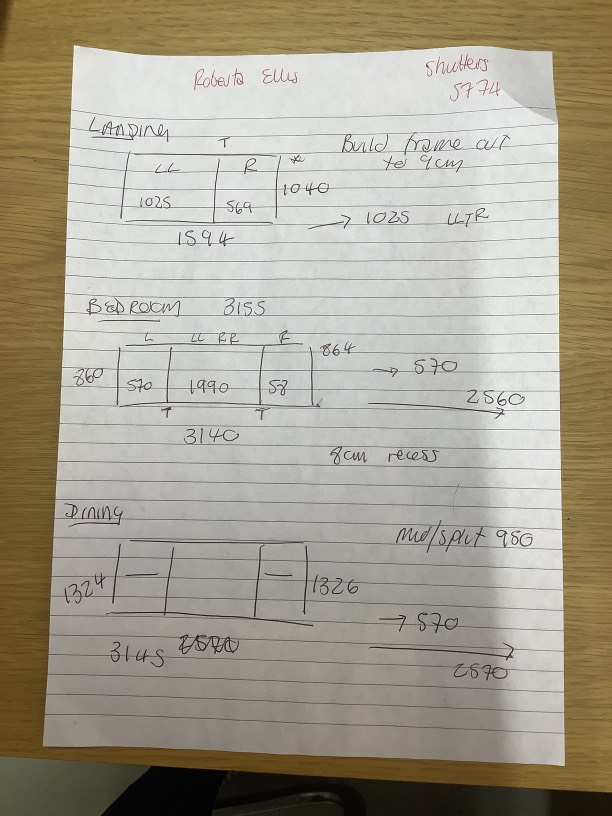 Roberta Ellis
Shutters
5774
LANDING
T
Build frame out
to 9cm
LL R
1040
1025 569
→ 1025 LLTR
1594
BEDROOM 3155
L LL RR R
864
860
570 1990 58
→ 570
2560
T T
3140
8cm recess
Dining
Mid/split 980
1324
1326
→ 570
3145
2570